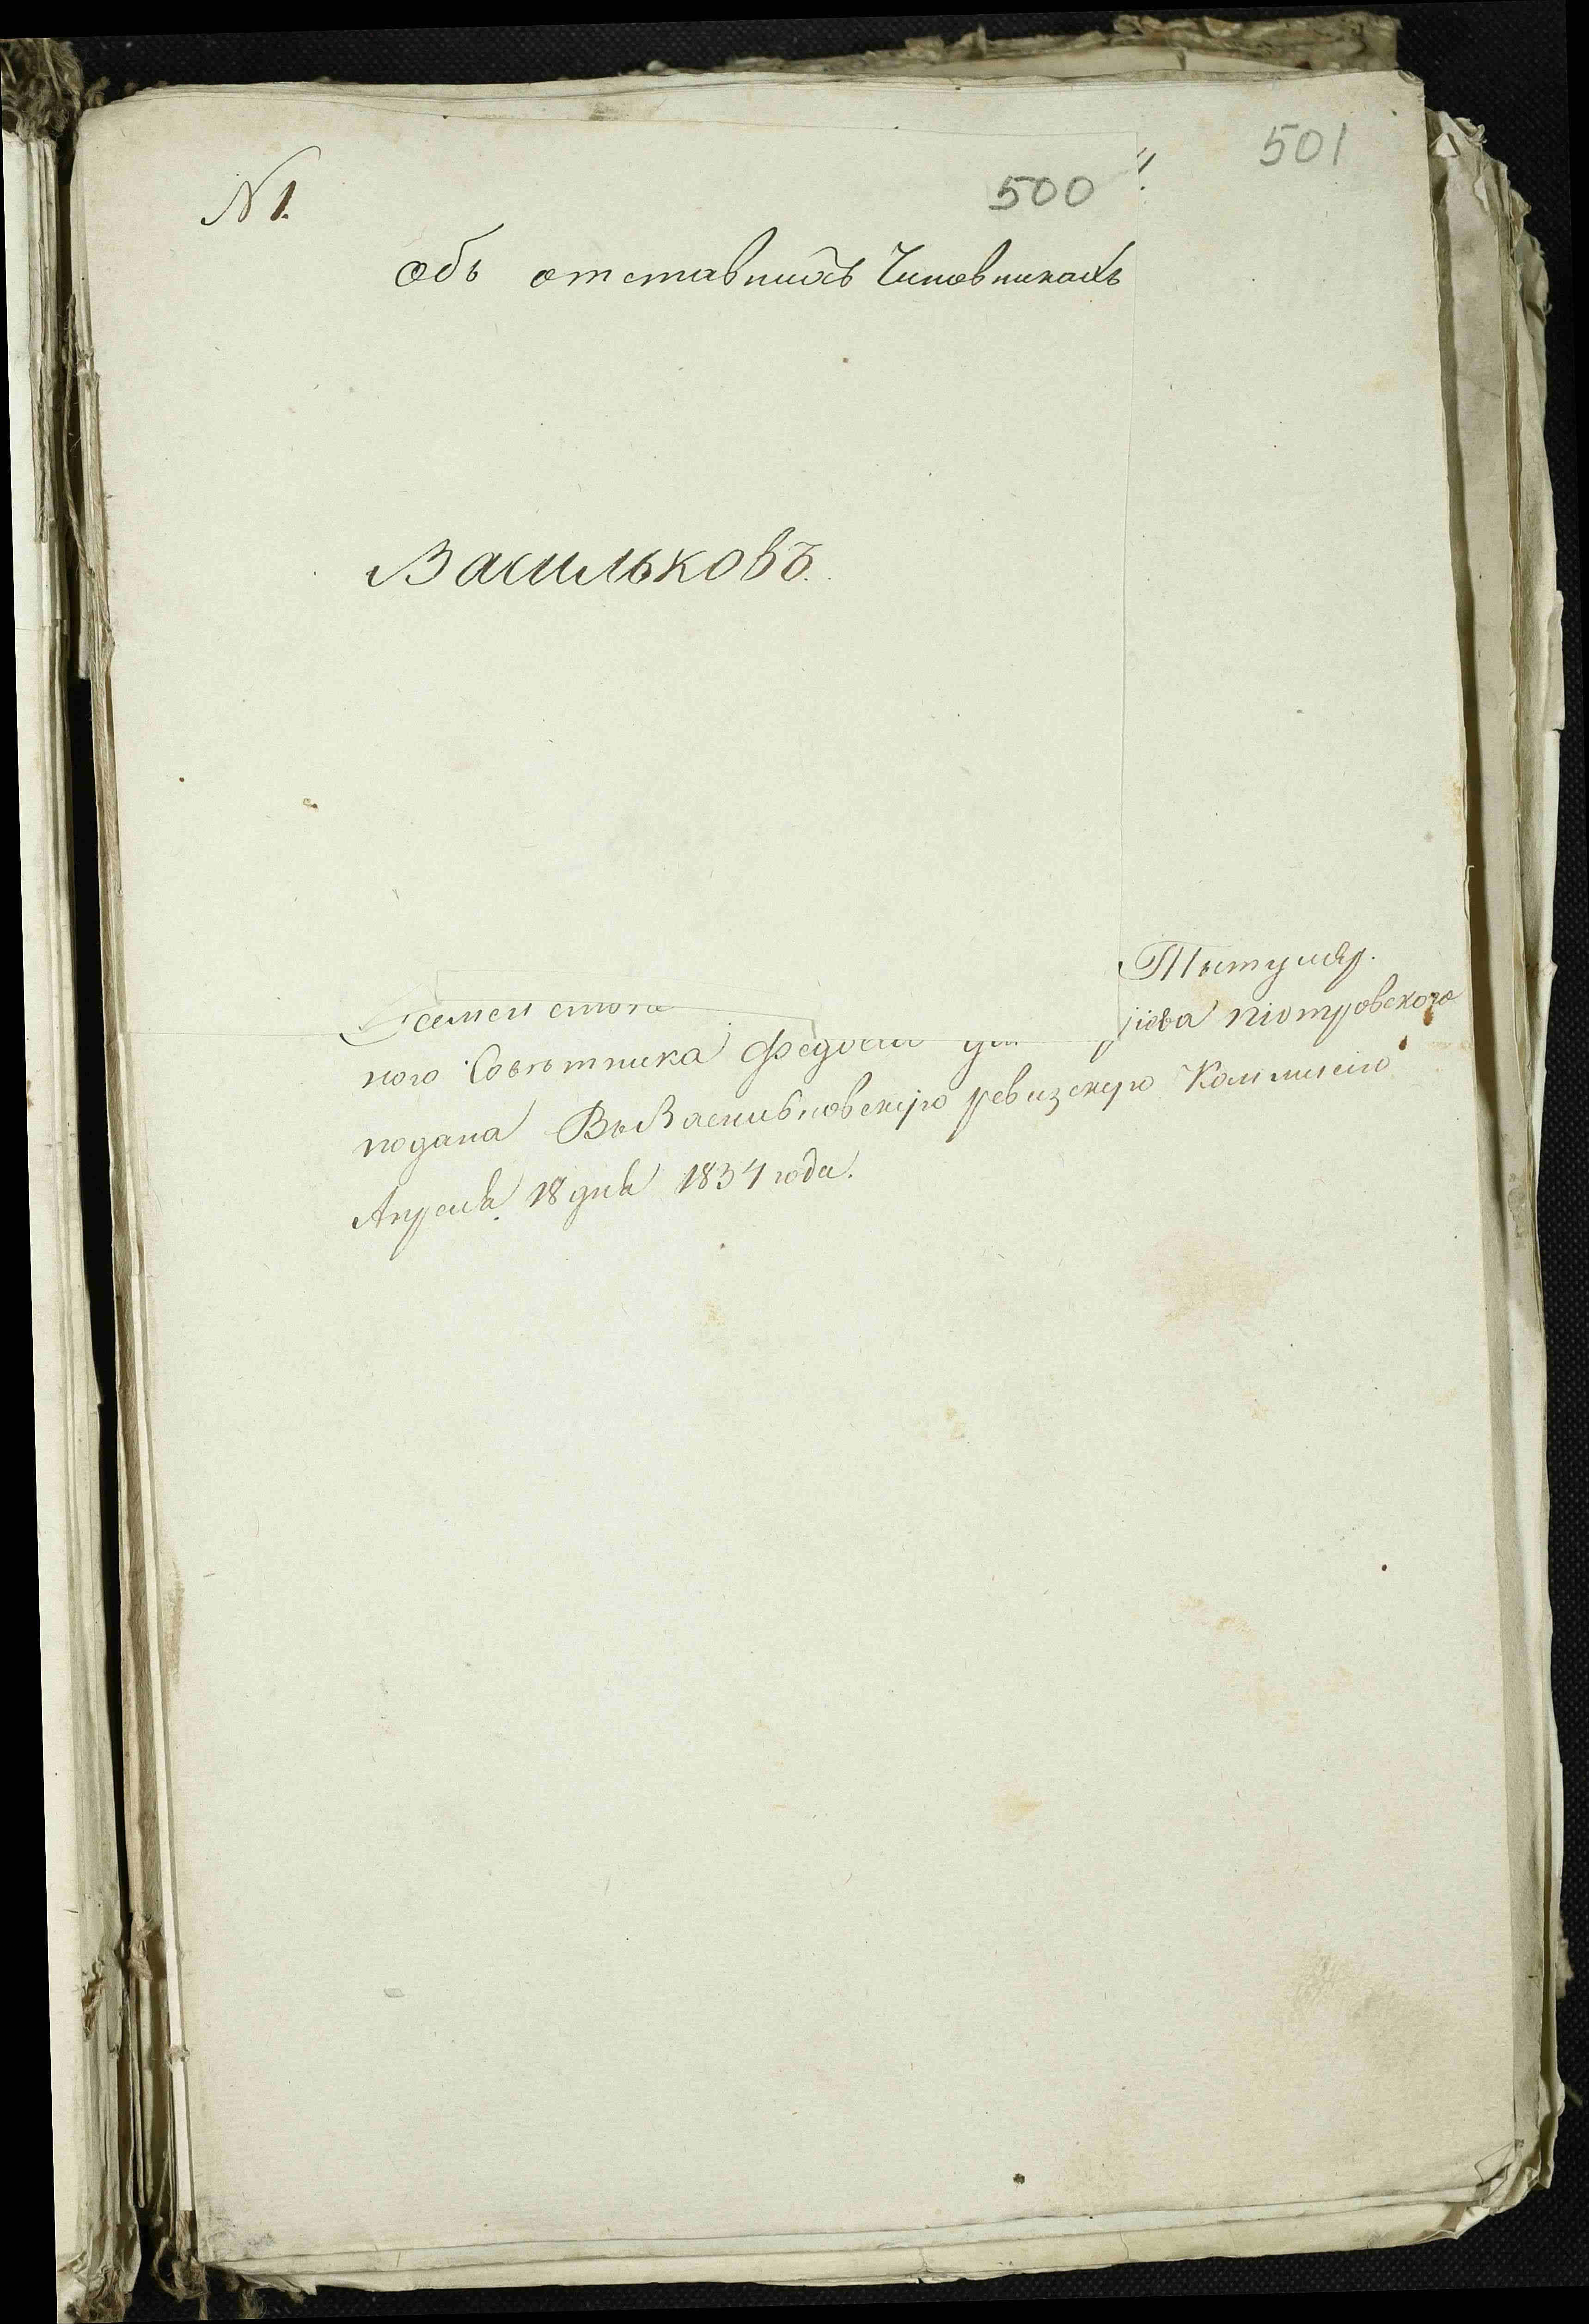 501
500
N 1.
Объ отставныхъ Чиновникахъ
Васильковъ.
Титуляр.
ного Совѣтника Піотровского
подана Въ Васильковскую ревизскую Коммисію
Апреля 18 дня 1834 года.